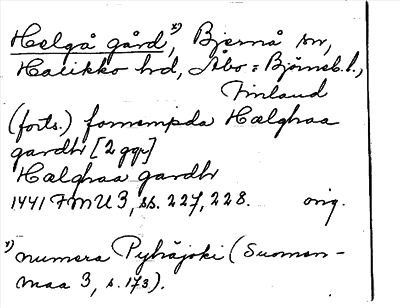 Helgå gård,ˣ⁾ Bjernå sn,
Halikko hd, Åbo = Björneb. l.,
Finland
(forts.) fornempda Hælghaa
gardhr [2 ggr]
Hælghaa gardhr
1441 FMU 3, ss. 227, 228. orig.
ˣ⁾ numera Pyhäjoki (Suomen-
maa 3, s. 173).